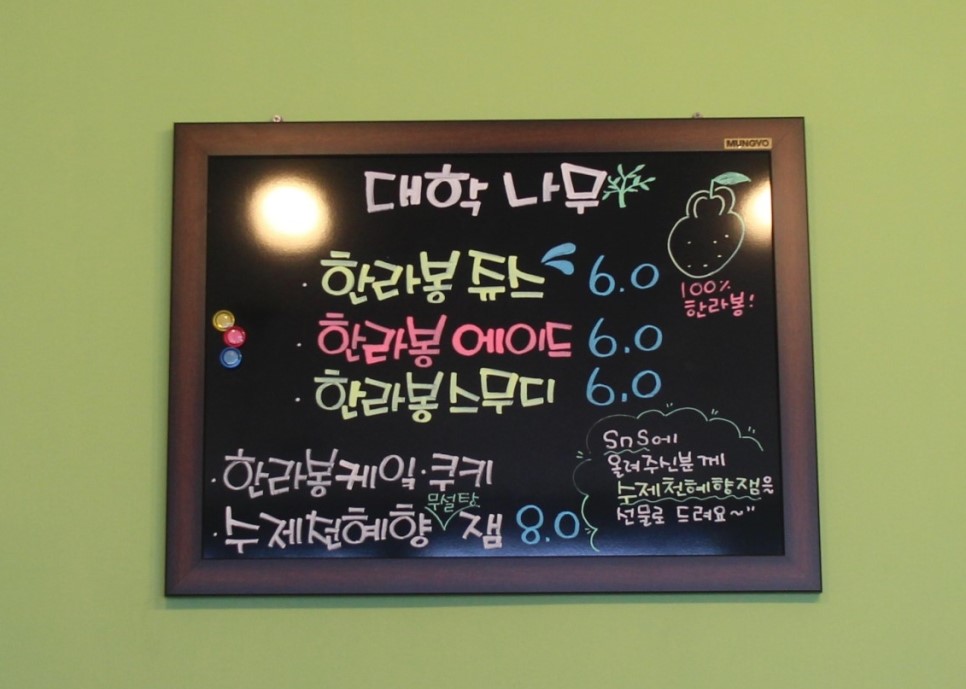 MUNGYO
대학 나무
· 한라봉 쥬스 6.0
100%
한라봉!
· 한라봉 에이드 6.0
· 한라봉 스무디 6.0
· 한라봉케잌·쿠키
무설탕
· 수제천혜향 잼 8.0
SnS에
올려주신분께
수제천혜향잼을
선물로 드려요~"